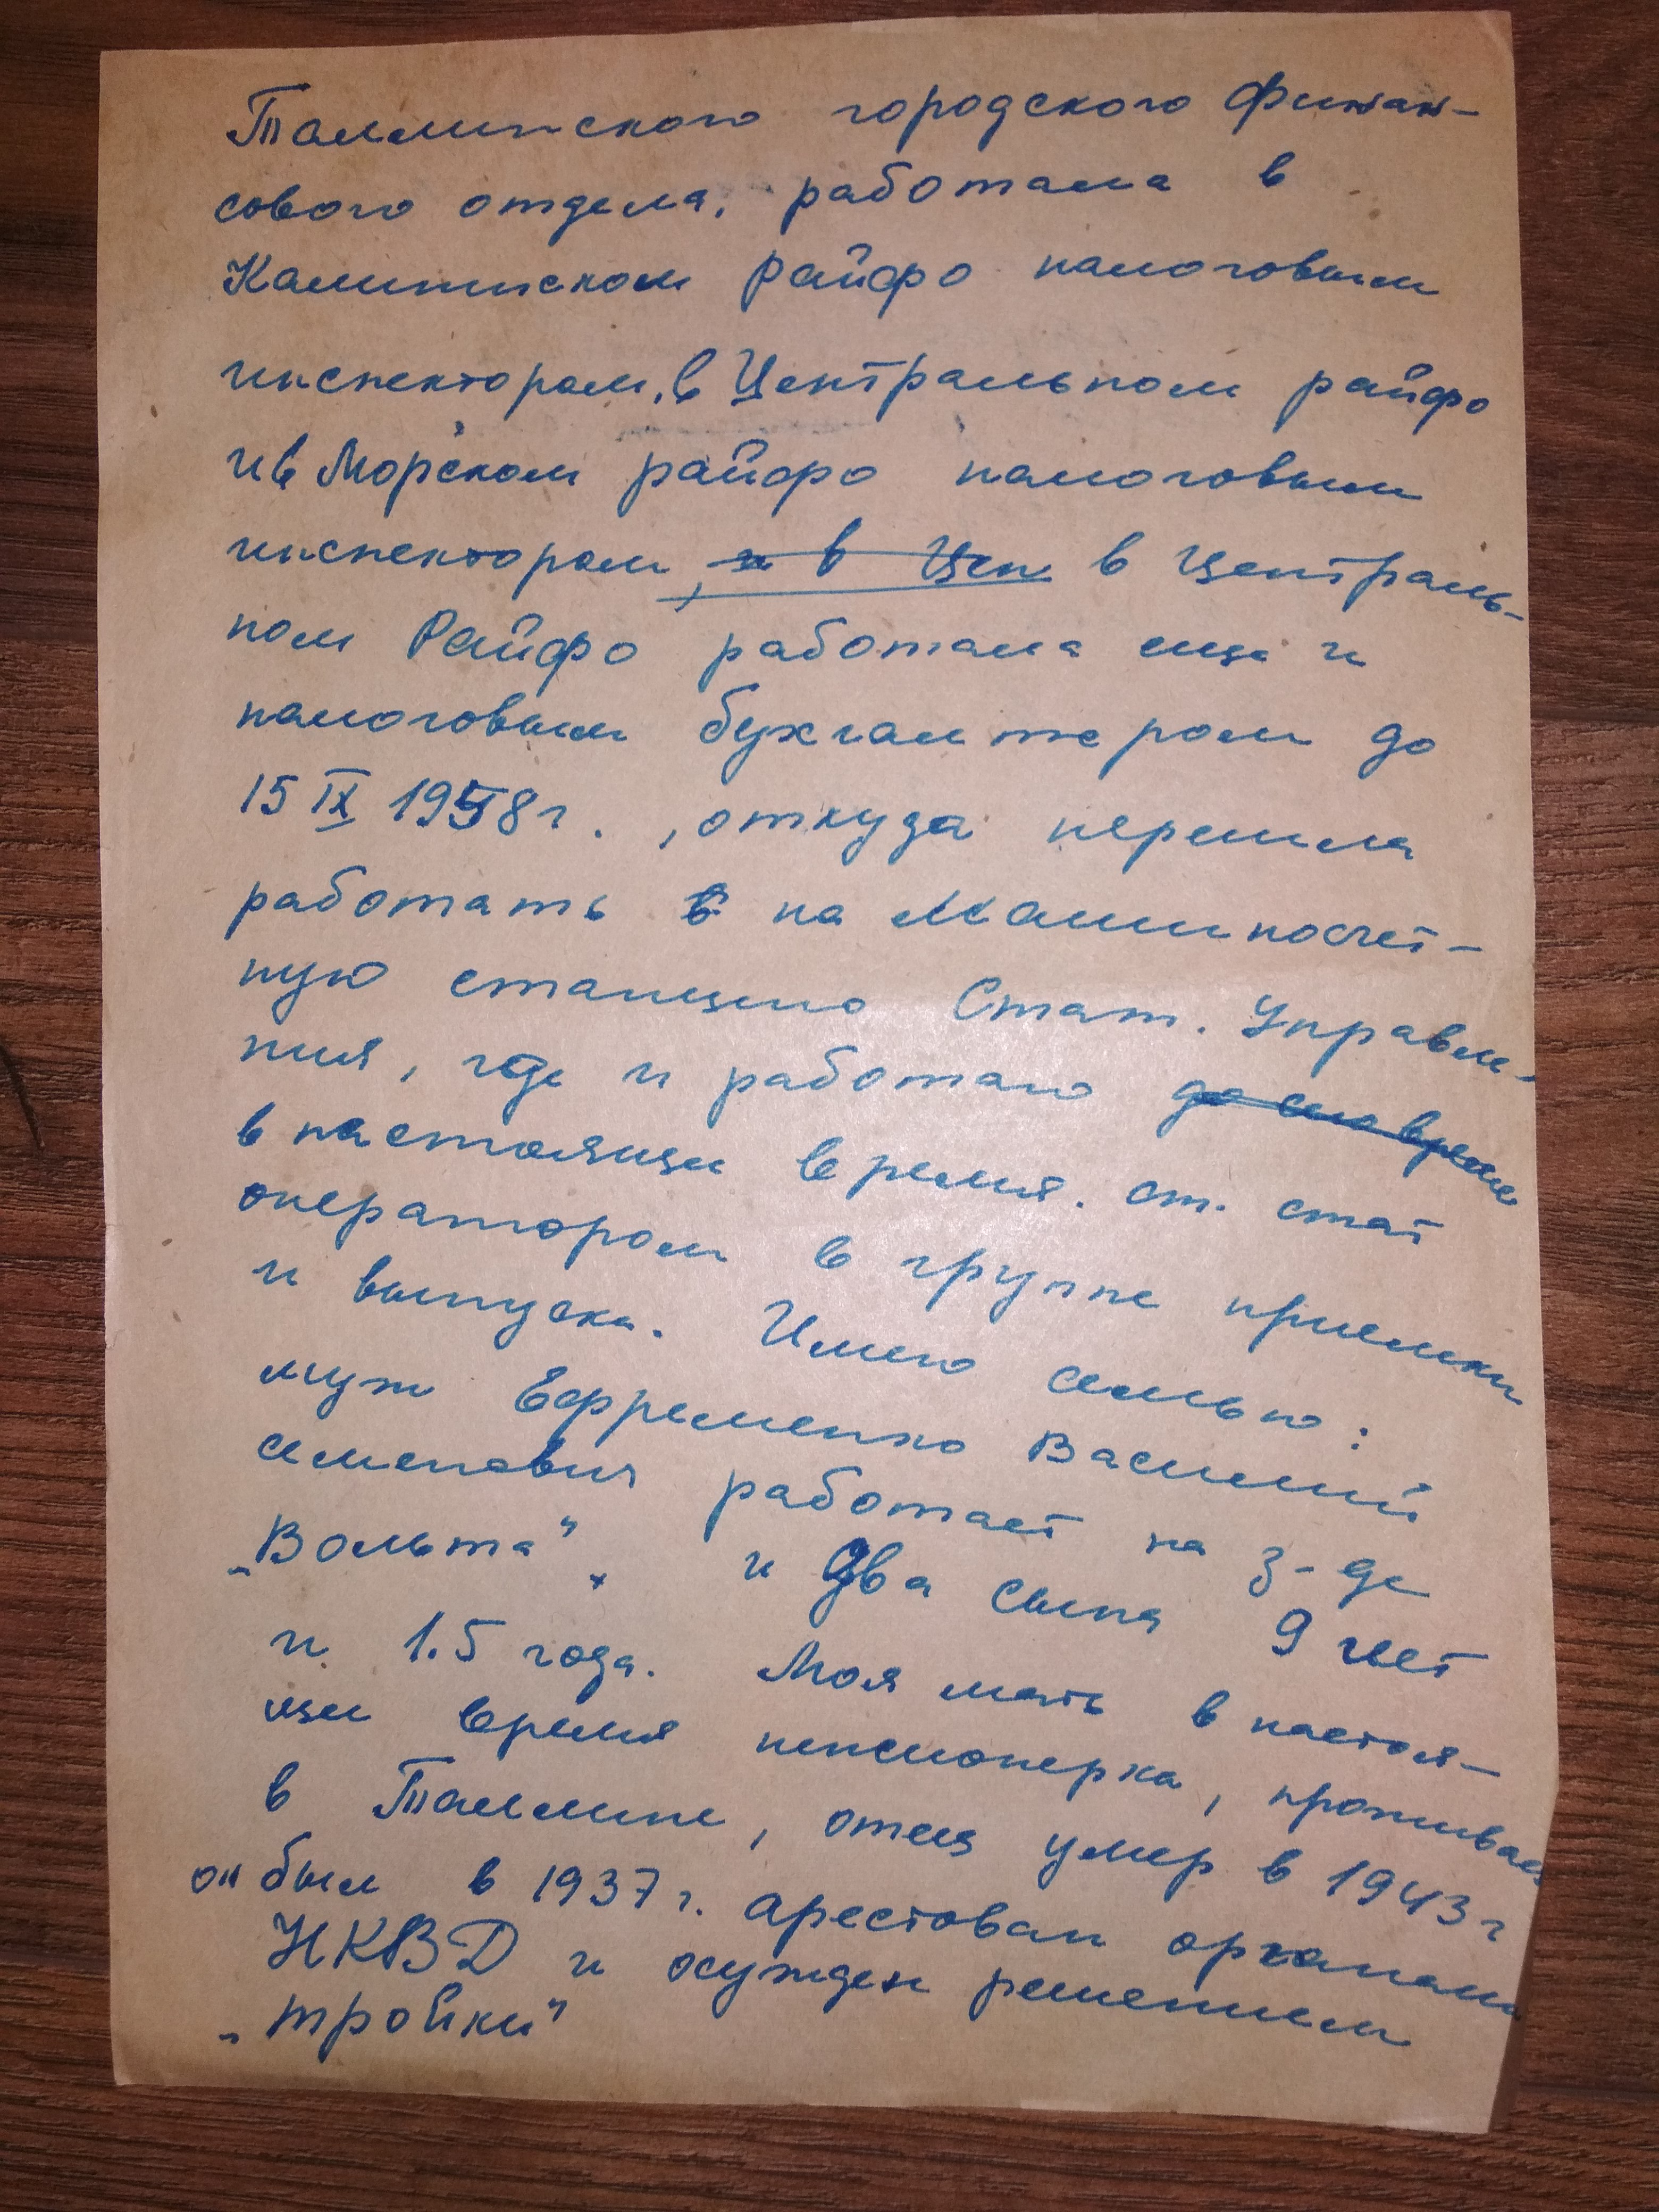 Таллинского городского Финан-
сового отдела, работала в
Калининском Райфо налоговым
инспектором, в Центральном райфо
и в Морском райфо налоговым
инспектором, и в Цен в Централь-
ном Райфо работала еще и
налоговым бухгалтером до
15 IX 1958 г. , откуда перешла
работать в на Машиносчет-
ную станцию Стат. Управле-
ния, где и работаю до сего время
в настоящее время. ст. стат
оператором в группе приемки
и выпуска. Имею семью:
муж Ефременко Василий
Семенович работает на з-де
„Вольта", и два сына 9 лет
и 1.5 года. Моя мать в настоя-
щее время пенсионерка, проживает
в Таллине, отец умер в 1943 г
он был в 1937 г. арестован органами
НКВД и осужден решением
„тройки"